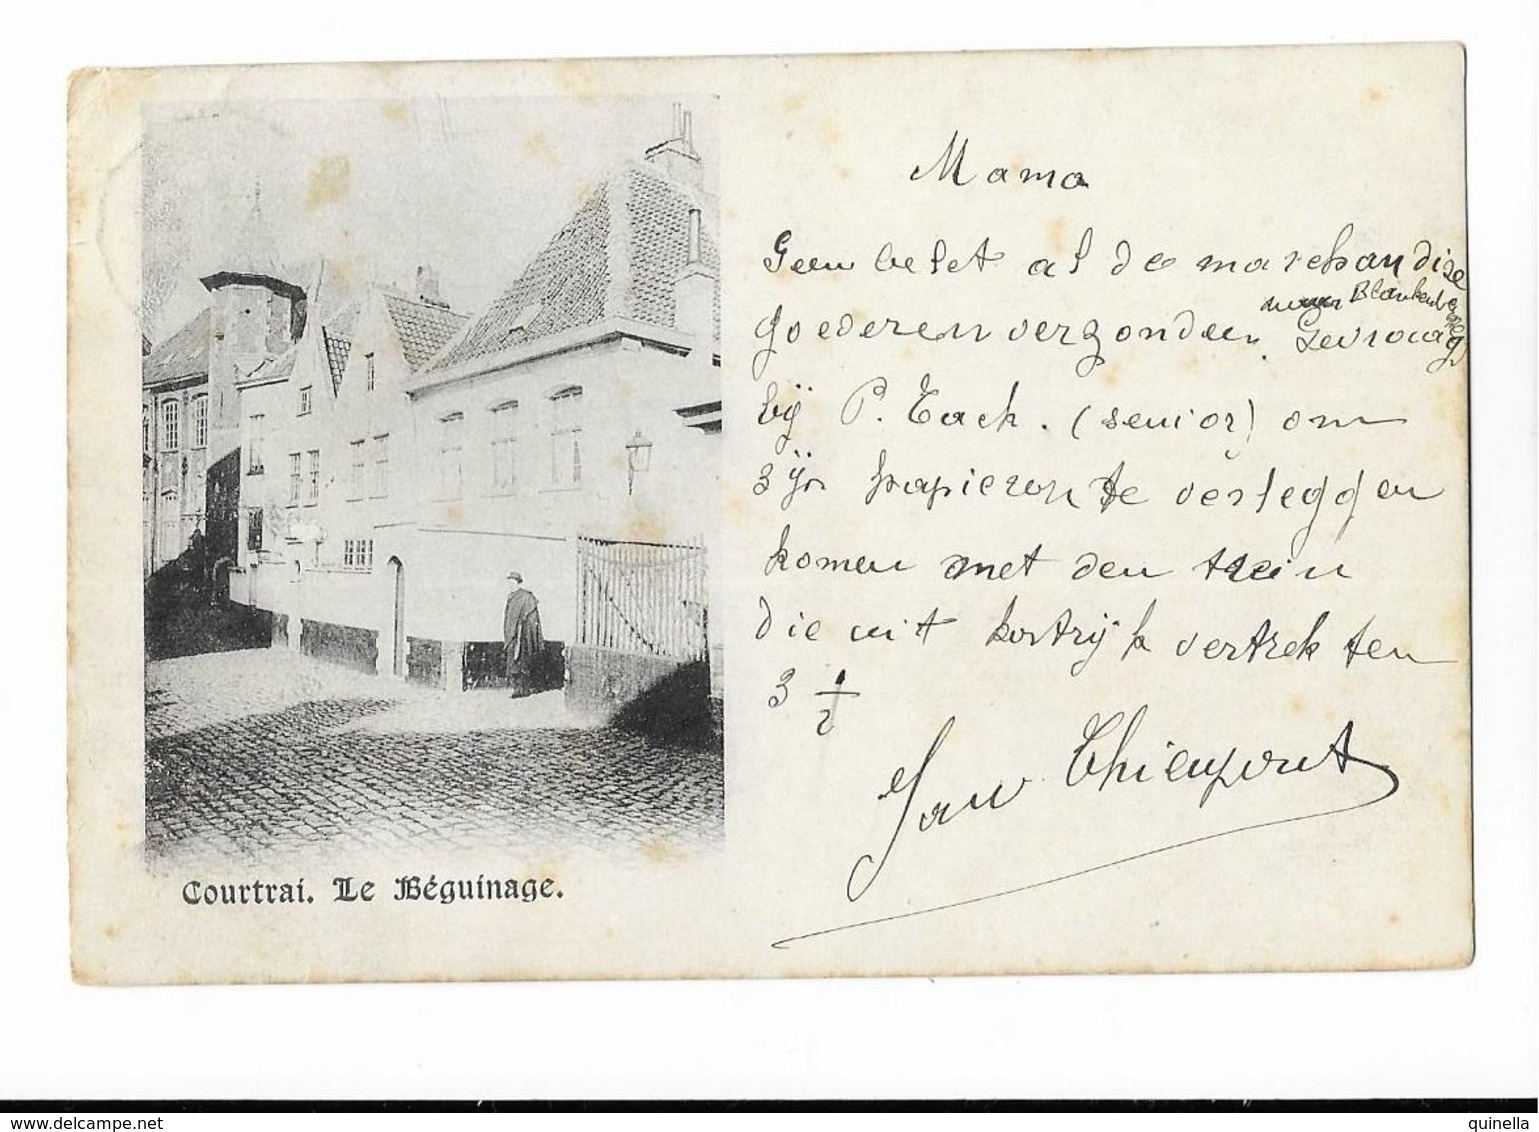 Mama
Geen belet al de marchandise
goederen verzonden naar Blankenberge
Gevraag
bij P. Tack. (senior) om
zijn papieren te verleggen
komen met den trein
die uit kortrijk vertrek ten
3 1/2
Jan Thienpont
Courtrai. Le Béguinage.
quinella
delcampe.net